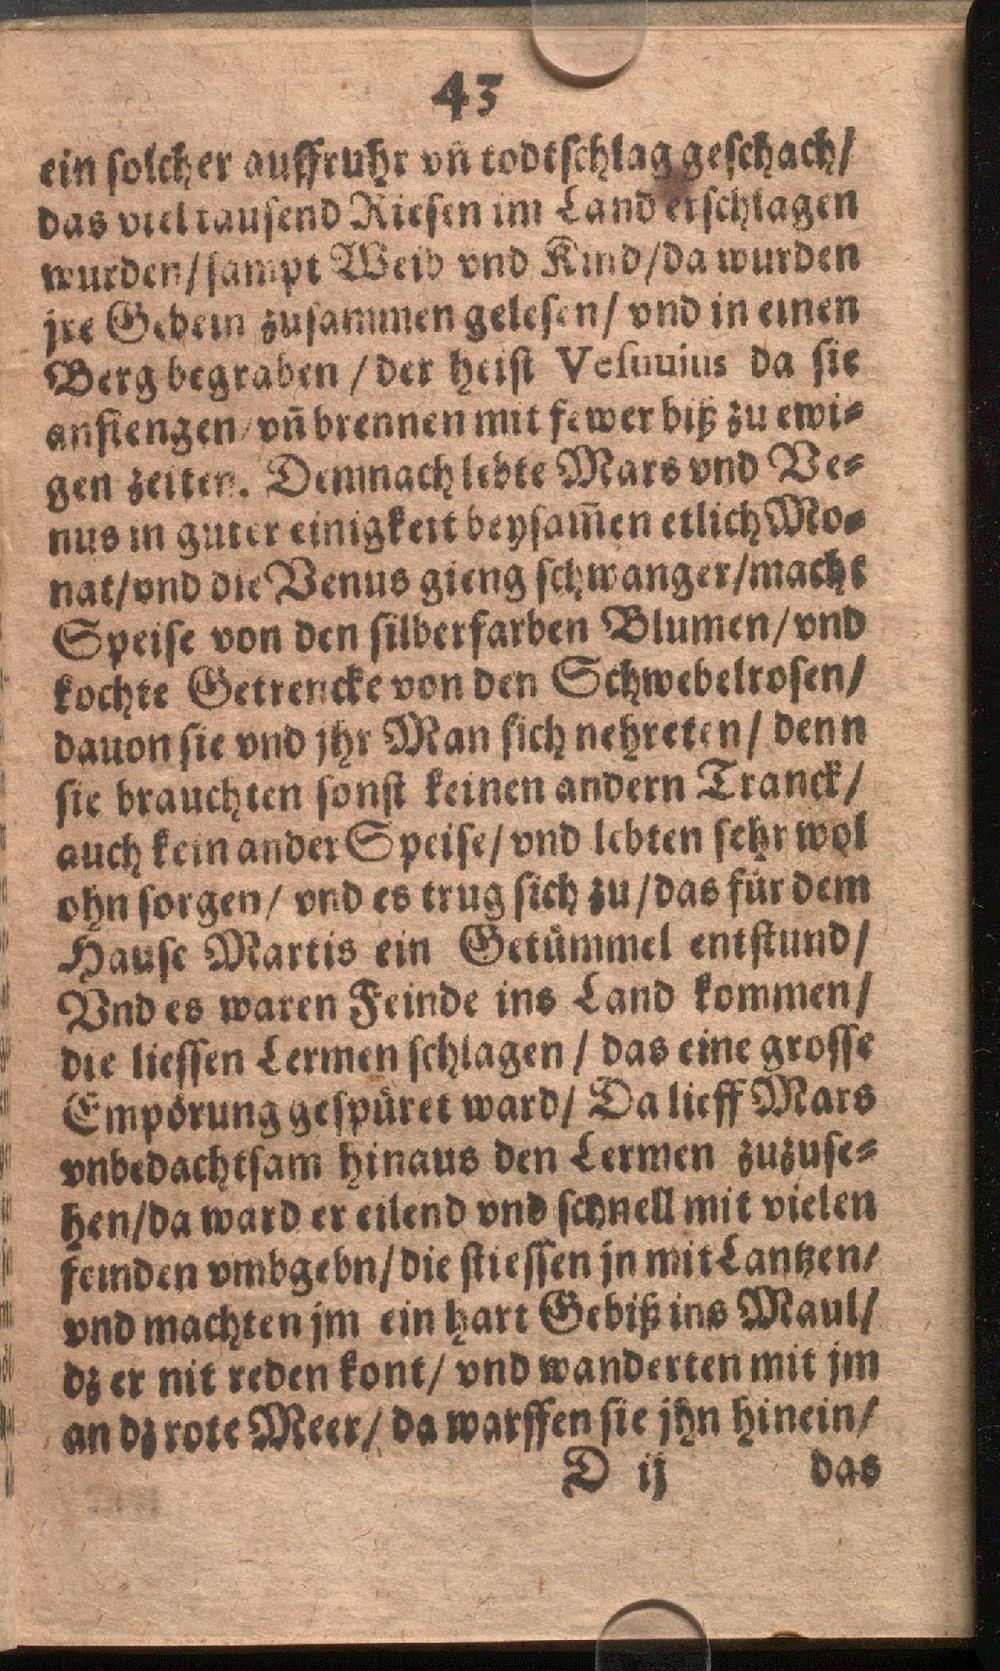 43
ein solcher auffruhr vñ todtschlag geschach/
das viel tausend Riesen im Land erschlagen
wurden/ sampt Weib vnd Kind/ da wurden
jre Gebein zusammen gelesen/ vnd in einen
Berg begraben / der heist Vesuuius da sie
anfiengen/ vñ brennen mit fewer biß zu ewi⸗
gen zeiten. Demnach lebte Mars vnd Ve⸗
nus in guter einigkeit beysam̃en etlich Mo⸗
nat/ vnd die Venus gieng schwanger/ macht
Speise von den silberfarben Blumen/ vnd
kochte Getrencke von den Schwebelrosen/
dauon sie vnd jhr Man sich nehreten/ denn
sie brauchten sonst keinen andern Tranck/
auch kein ander Speise/ vnd lebten sehr wol
ohn sorgen/ vnd es trug sich zu/ das für dem
Hause Martis ein Getümmel entstund/
Vnd es waren Feinde ins Land kommen/
die liessen Lermen schlagen / das eine grosse
Empörung gespüret ward/ Da lieff Mars
vnbedachtsam hinaus den Lermen zuzuse⸗
hen/ da ward er eilend vnd schnell mit vielen
feinden vmbgebn/ die stiessen jn mit Lantzen/
vnd machten jm ein hart Gebiß ins Maul/
dz er nit reden kont/ vnd wanderten mit jm
an dz rote Meer/ da warffen sie jhn hinein/
D ij das